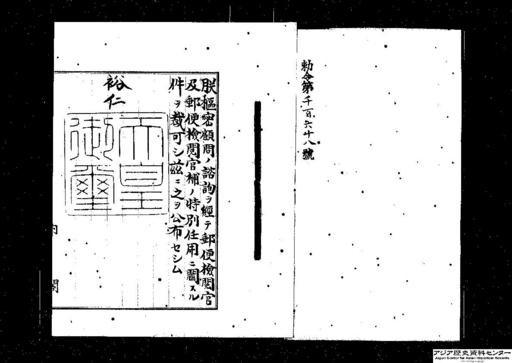 勅令第千百六十八號
朕樞密顧問ノ諮詢ヲ經テ郵便檢閲官
及郵便檢閲官補ノ特別任用ニ關スル
件ヲ裁可シ茲ニ之ヲ公布セシム
裕仁
天皇
御璽
内閣
アジア歴史資料センター
Japan Center for Asian Historical Records